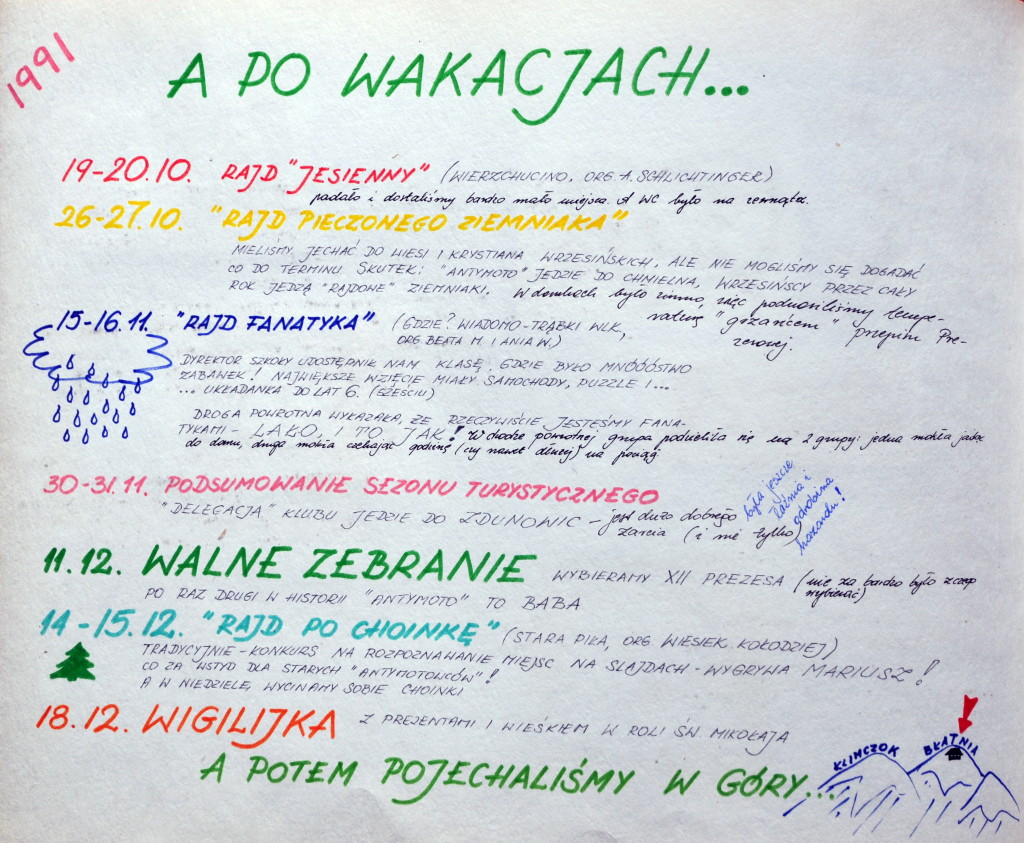 1991
A PO WAKACJACH...
19-20.10. RAJD "JESIENNY" (WIERZCHUCINO, ORG. A. SCHLICHTINGER)
padało i dostaliśmy bardzo mało miejsca. A WC było na zewnątrz.
26-27.10. "RAJD PIECZONEGO ZIEMNIAKA"
MIELIŚMY JECHAĆ DO WIESI I KRYSTIANA WRZESIŃSKICH, ALE NIE MOGLIŚMY SIĘ DOGADAĆ
CO DO TERMINU. SKUTEK: "ANTYMOTO" JEDZIE DO CHMIELNA, WRZESIŃSCY PRZEZ CAŁY
ROK JEDZĄ "RAJDOWE" ZIEMNIAKI. W domkach było zimno, więc podnosiliśmy tempe-
raturę "grzańcem" przepisu Pre-
zesowej.
15-16.11. "RAJD FANATYKA" (GDZIE? WIADOMO-TRĄBKI WLK,
ORG. BEATA M. I ANIA W.)
DYREKTOR SZKOŁY UDOSTĘPNIŁ NAM KLASĘ, GDZIE BYŁO MNÓÓÓSTWO
ZABAWEK! NAJWIĘKSZE WZIĘCIE MIAŁY SAMOCHODY, PUZZLE I...
... UKŁADANKA DO LAT 6. (SZEŚCIU)
DROGA POWROTNA WYKAZAŁA, ŻE RZECZYWIŚCIE JESTEŚMY FANA-
TYKAMI - LAŁO, I TO JAK! W drodze powrotnej grupa podzieliła się na 2 grupy: jedna mokła jadąc
do domu, druga mokła czekając godzinę (czy nawet dłużej) na pociąg.
30-31.11. PODSUMOWANIE SEZONU TURYSTYCZNEGO
"DELEGACJA" KLUBU JEDZIE DO ZDUNOWIC - jest dużo dobrego
żarcia (i nie tylko)
była jeszcze
łaźnia i
odrobina
hazardu!
11.12. WALNE ZEBRANIE WYBIERAMY XII PREZESA (nie za bardzo było z czego
wybierać)
PO RAZ DRUGI W HISTORII "ANTYMOTO" TO BABA
14-15.12. "RAJD PO CHOINKĘ" (STARA PIŁA, ORG. WIESIEK KOŁODZIEJ)
TRADYCYJNIE - KONKURS NA ROZPOZNAWANIE MIEJSC NA SLAJDACH - WYGRYWA MARIUSZ!
CO ZA WSTYD DLA STARYCH "ANTYMOTOWCÓW"!
A W NIEDZIELĘ, WYCINAMY SOBIE CHOINKI
18.12. WIGILIJKA Z PREZENTAMI I WIEŚKIEM W ROLI ŚW. MIKOŁAJA
A POTEM POJECHALIŚMY W GÓRY...
KLIMCZOK
BŁATNIA